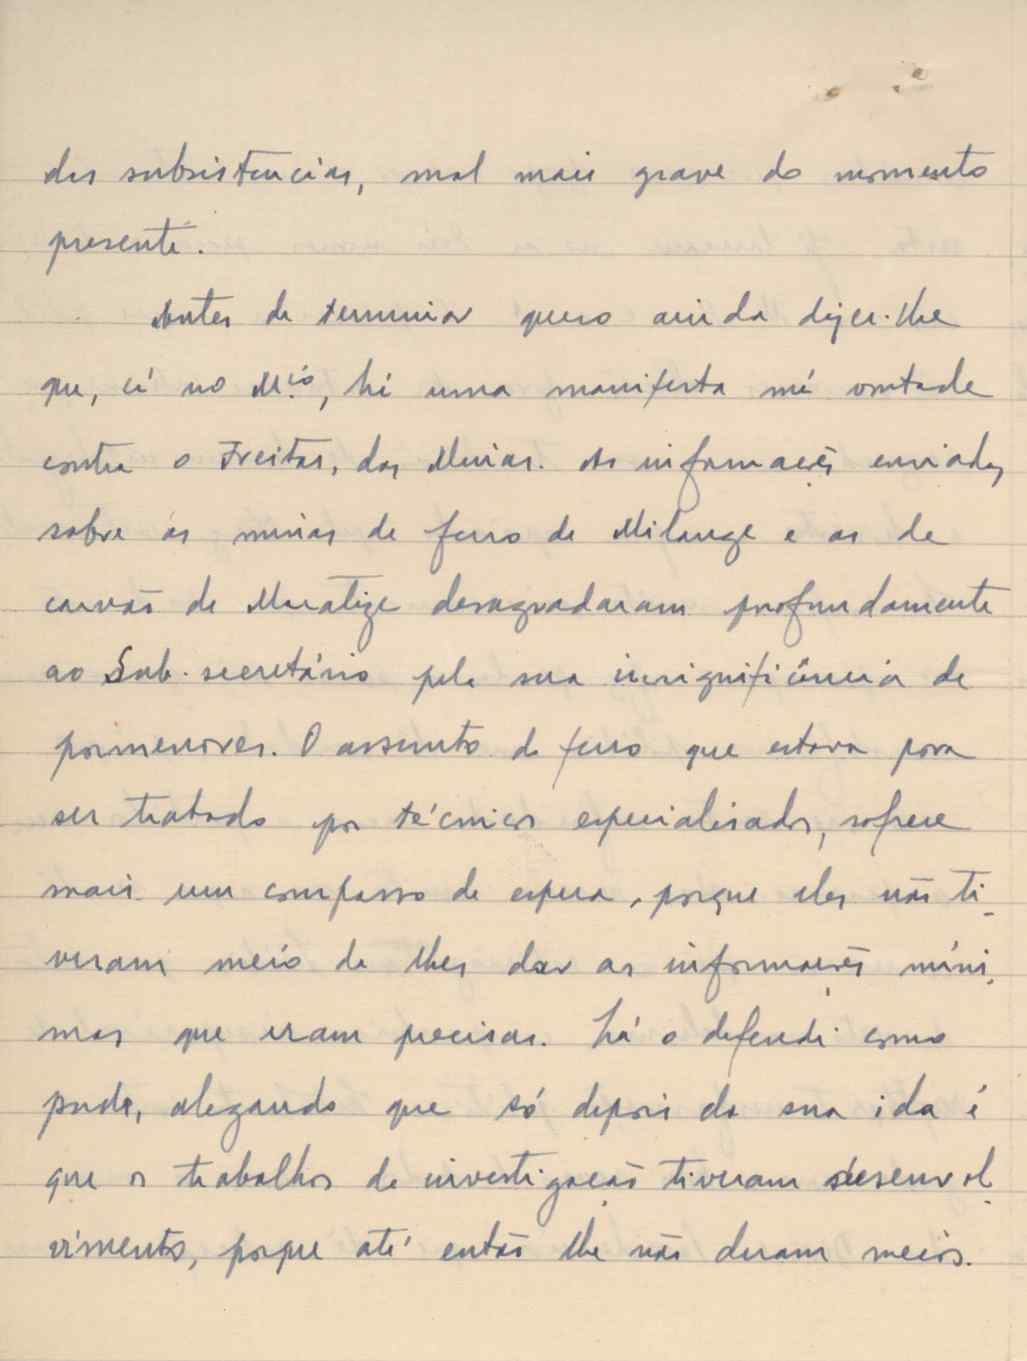 das subsistencias, mal mais grave do momento
presente.
Antes de terminar quero ainda dizer-lhe
que, cá no M.ᶦᵒ, há uma manifesta má vontade
contra o Freitas, das Minas. As informações enviadas
sobre as minas de ferro de Milange e as de
carvão de Moatize desagradaram profundamente
ao Sub-secretário pela sua insignificância de
pormenores. O assunto do ferro que estava para
ser tratado por técnicos especialisados, sofreu
mais um compasso de espera, porque eles não ti-
veram meio de lhes dar as informações míni-
mas que eram precisas. Lá o defendi como
pude, alegando que só depois da sua ida é
que os trabalhos de investigação tiveram desenvol-
vimento, porque até então lhe não deram meios.